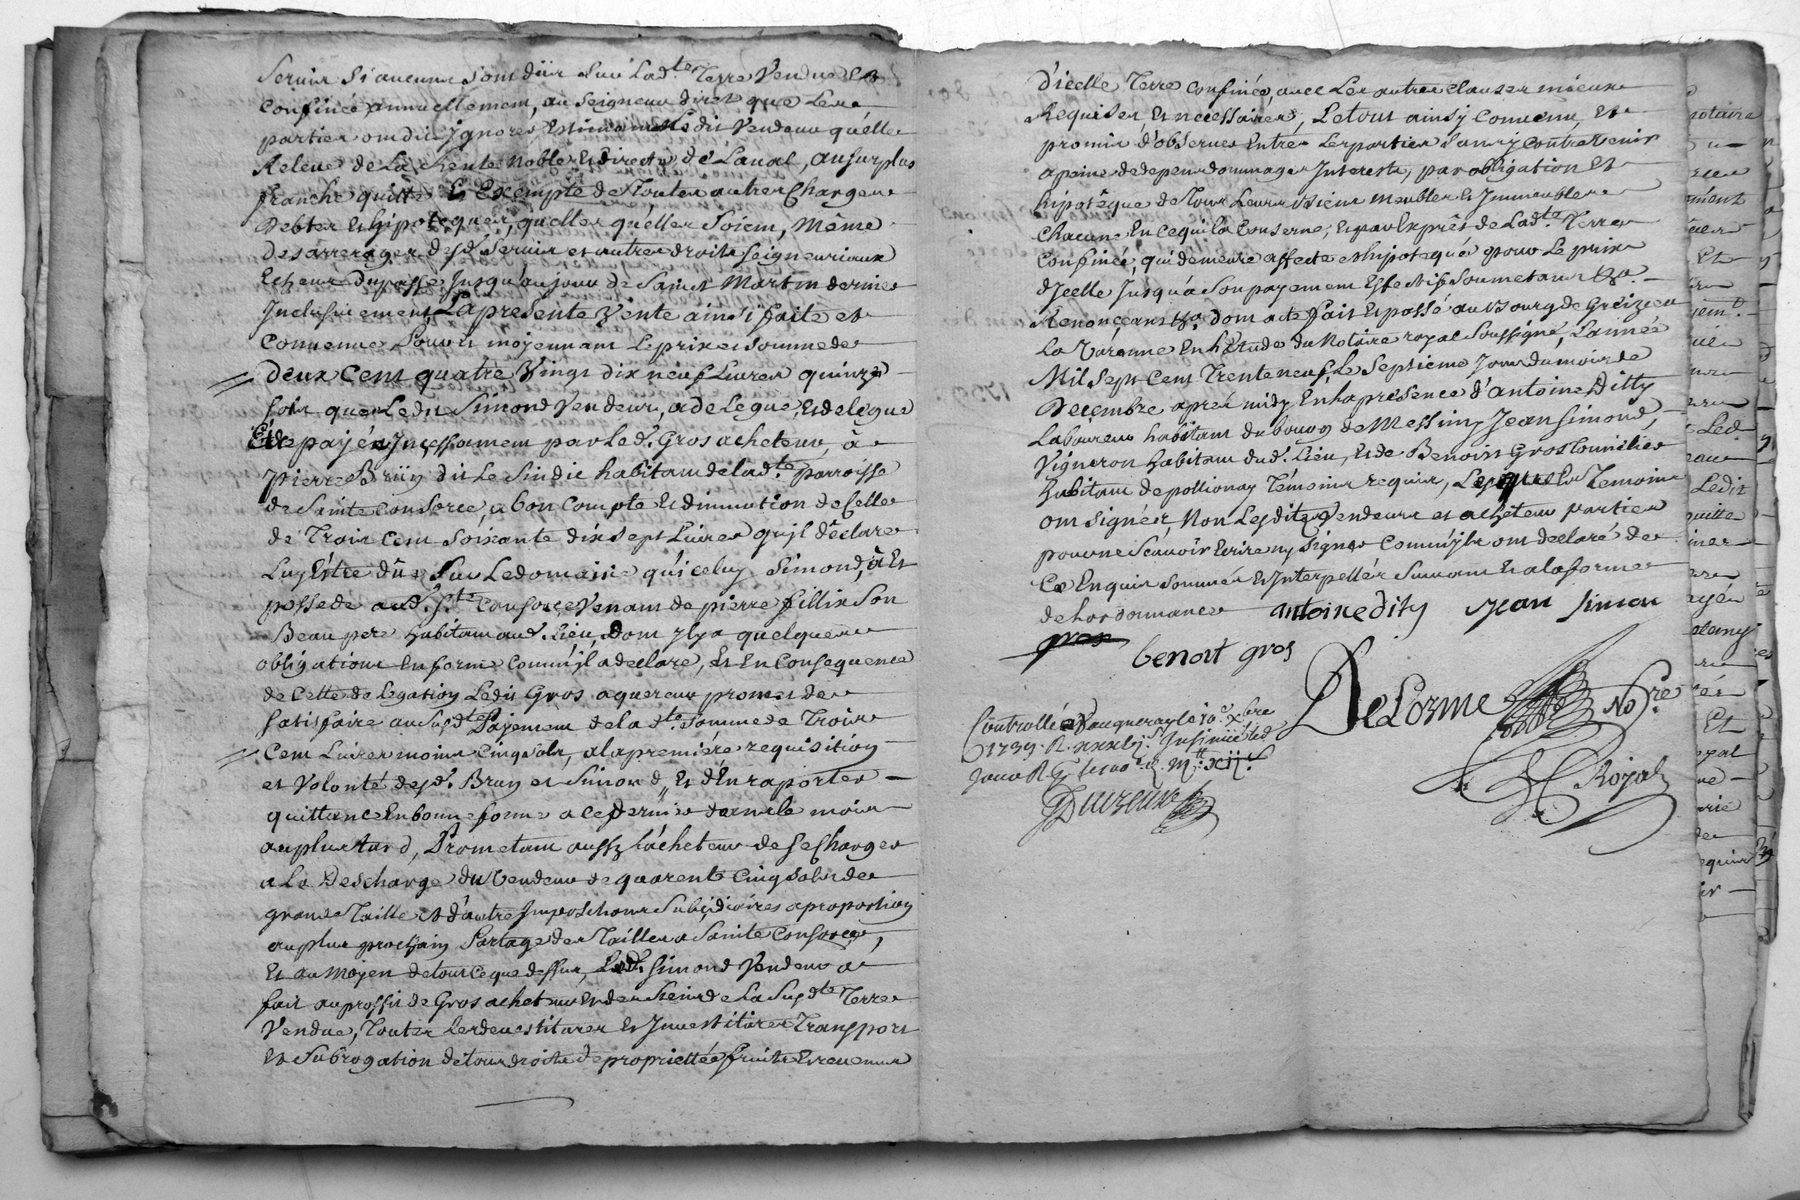 Servis si aucuns sont dûs sur lad.te Terre Vendue Et
Confinée annuellement, au seigneur direct que les
parties ont dit Ignorer, Estimant led. dit Vendeur qu'elle
Releve de la Rente Noble Et directe de Laval, au surplus
franche quitte Et Exempte de Toutes autres Charges
Debtes Et hipoteques, quelles qu'elles soient, Même
des arrerages desd. Servis et autres droits seigneuriaux
Echeus du passé Jusqu'au jour de Saint Martin dernier
Inclusivement, La presente Vente ainsi faite et
Convenue Pour et moyennant le prix et somme de
Deux Cent quatre Vingt dix neuf Livres quinze
sols que Ledit Simond Vendeur, a deLegué, Et delegue
Etre payée Incessament par Led. Gros acheteur, à
pierre Bruy dit Le Sindic habitant de lad.te Parroisse
de Sainte Consorce, a bon Compte Et diminution de Celle
de Trois Cent soixante dix sept Livres qu'jl declare
Luy Estre dûe Sur Le domaine qu'iceluy Simond, à Et
possede aud. S.te Consorce Venant de pierre fillix son
Beau pere habitant aud. Lieu, dont Jl y a quelques
obligations En forme Comm'jl a declaré, Et En Consequence
de Cette deLegation Ledit Gros aquereur promet de
satisfaire au susd.t Payement de la d.te somme de Trois
Cent Livres moins Cinq sols, a la premiére requisition
et Volonté desd. Bruy et Simond, Et d'En raporter
quittance En bonne forme a ce dernier dans le mois
au plus tard, Prometant aussy l'acheteur de se Charger
a la Descharge du Vendeur de quarente Cinq sols de
grande Taille Et d'autre Impositions Subsidiaires a proportion
au plus prochain Partage des Tailles a Sainte Consorce,
Et au Moyen de tout ce que dessus, Led. Simond Vendeur a
fait au proffit de Gros acheteur Et des Siens de La Susd.te Terre
Vendue, Toutes les devestitures Et Investitures Transport
Et Subrogation de tous droits de proprietté fruits Et revenus
d'icelle Terre Confinée, avec Les autres Clauses mieux
Requises Et necessaires, Le tout ainsy Convenu, Et
promis d'observer Entre Les parties sans y Contrevenir
a peine de depens dommages Interests, par obligation Et
hipotêque de Tous Leurs biens meubles Et Immeubles
Chacune En ce qui la Conserne, Et par Exprês de Lad.te Terre
Confinée, qui demeure affecte et hipotequé pour Le prix
d'Jcelle Jusqu'a son payement Effectif Soumetant &a.
Renonçant &a. dont acte fait Et passé au Bourg de Grézieu
La Varenne En l'Etude du Notaire royal Soussigné, L'année
Mil Sept Cent Trente neuf Le Septieme Jour du mois de
Decembre aprés midy En la presence d'antoine Ditty
Laboureur habitant du bourg de Messimy Jean Simond,
Vigneron habitant dud. Lieu, Et de Benoist Gros Tonnelier
habitant de pollionay Témoins requis, Lesquels Temoins
ont signés, Non Lesdits Vendeur et acheteur parties
pour ne sçavoir Ecrire ny signer Comm'jls ont declaré de
Ce Enquis sommés Et Interpellés Suivant Et a la forme
de L'ordonnance antoine dity jean simon
gros
benoit gros
DeLorme No.re
Royal
Controllé à Vaugneray le 10.e Xbre
1739